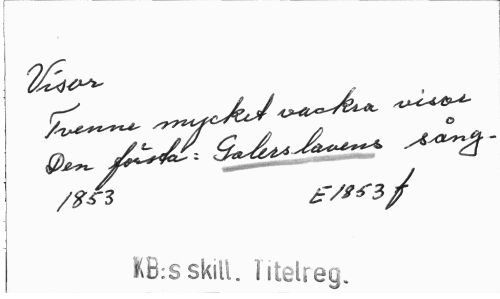 Visor
Tvenne mycket vackra visor
Den första: Galerslavens sång.
1853 E1853 f
KB:s skill. Titelreg.